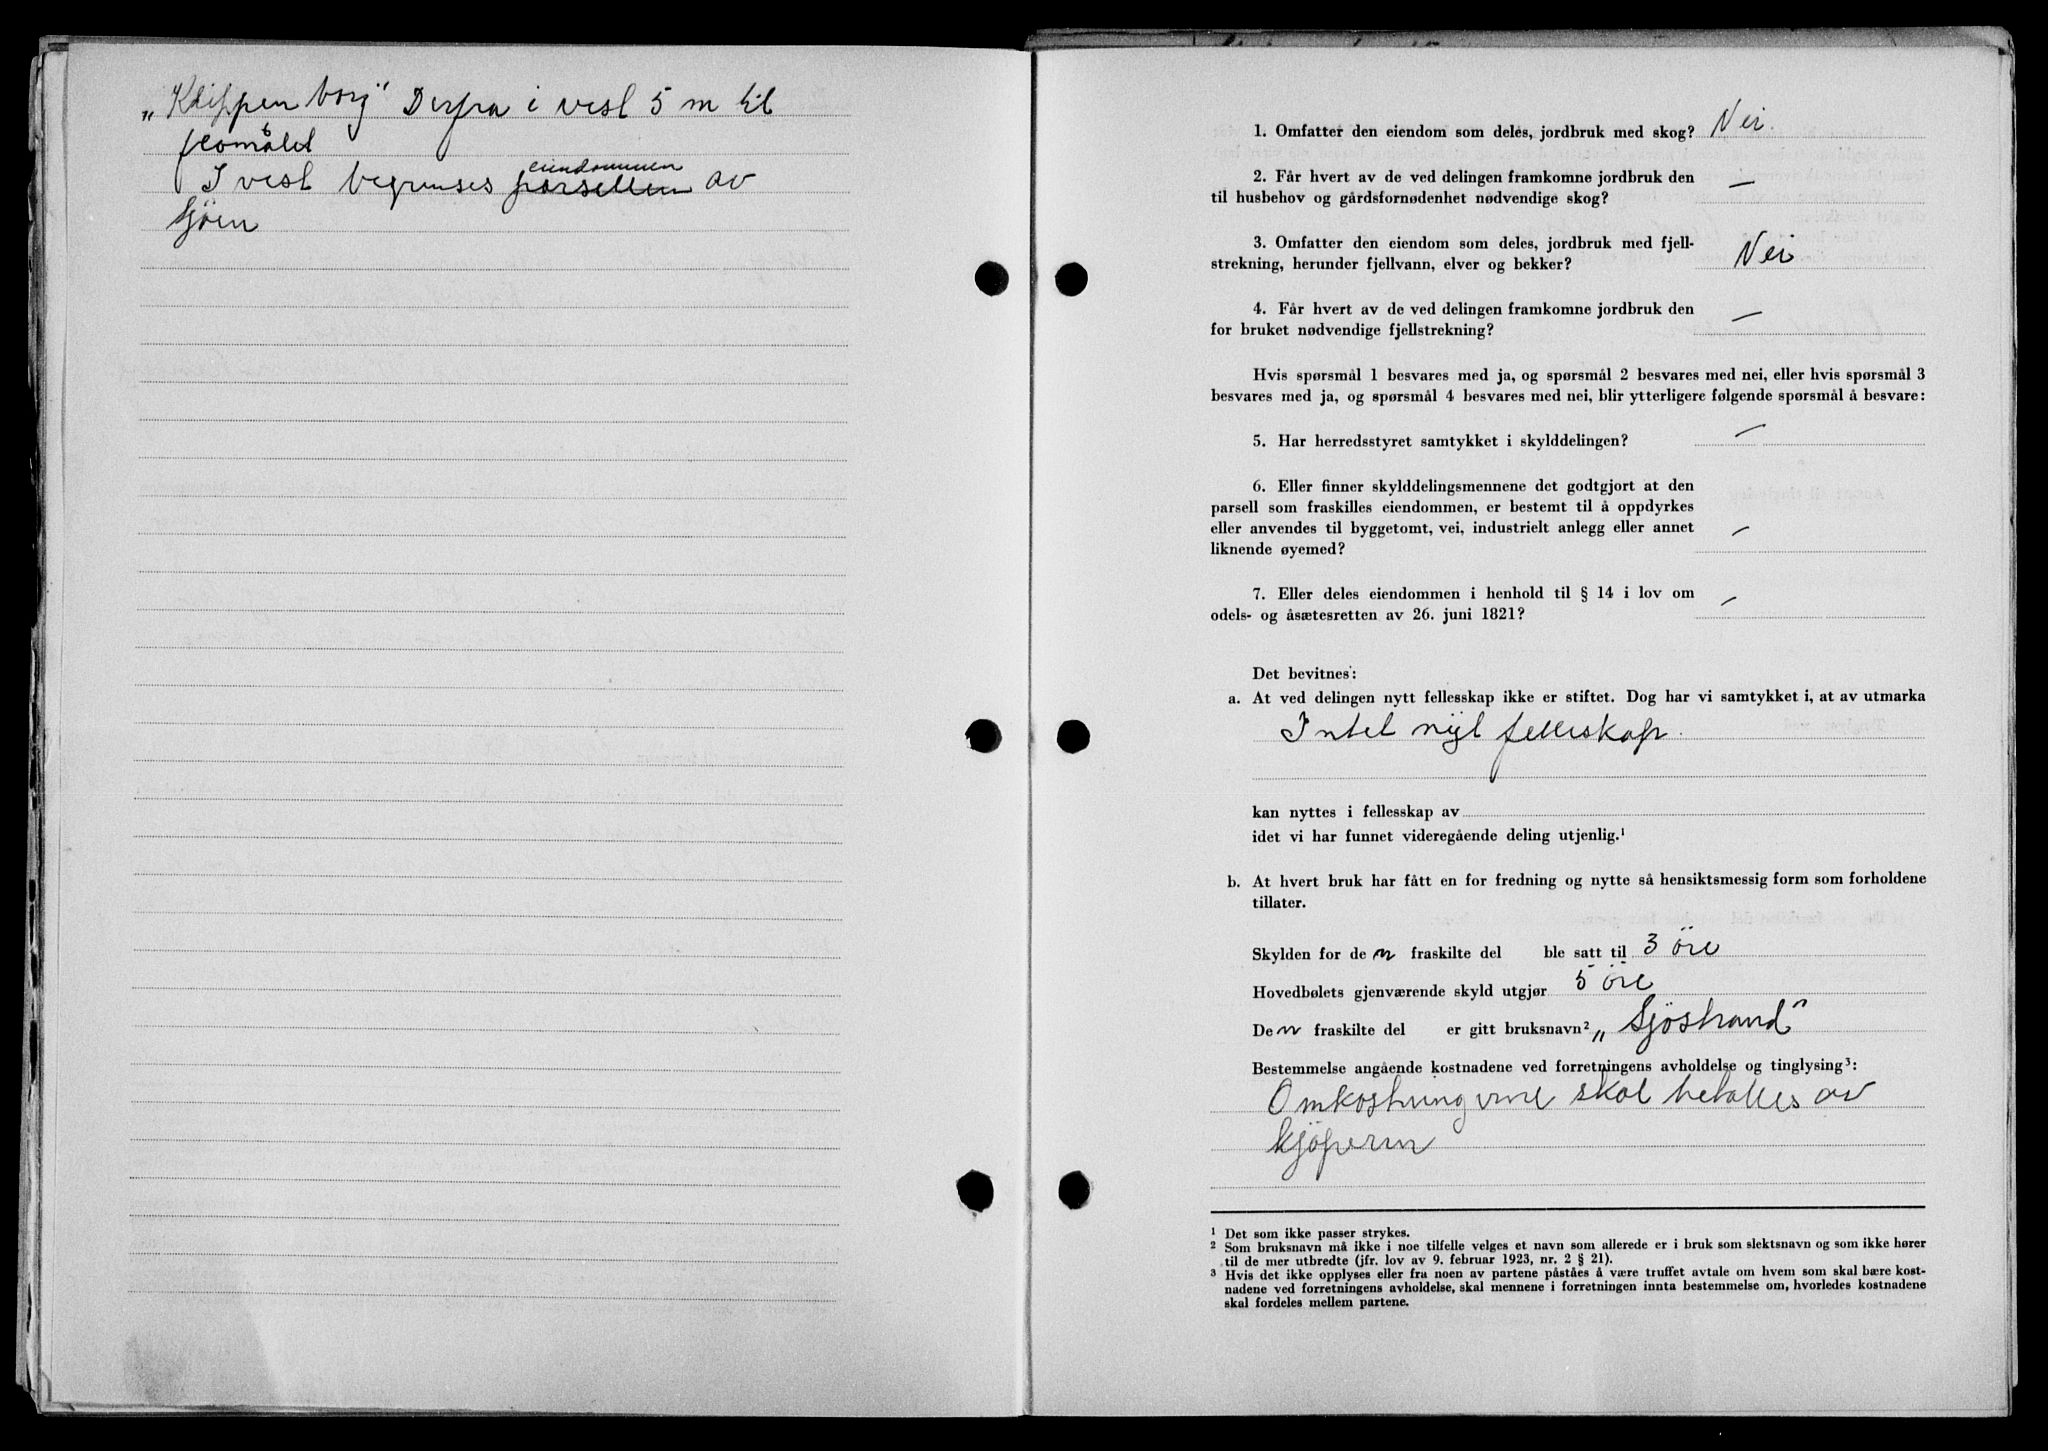 „Klippenborg" Derfra i vest 5 m til
flomålet
I vest begrenses parsellen eiendommen av
Sjøen
1. Omfatter den eiendom som deles, jordbruk med skog? Nei.
2. Får hvert av de ved delingen framkomne jordbruk den
til husbehov og gårdsfornødenhet nødvendige skog? —
3. Omfatter den eiendom som deles, jordbruk med fjell-
strekning, herunder fjellvann, elver og bekker? Nei
4. Får hvert av de ved delingen framkomne jordbruk den
for bruket nødvendige fjellstrekning? —
Hvis spørsmål 1 besvares med ja, og spørsmål 2 besvares med nei, eller hvis spørsmål 3
besvares med ja, og spørsmål 4 besvares med nei, blir ytterligere følgende spørsmål å besvare:
5. Har herredsstyret samtykket i skylddelingen? —
6. Eller finner skylddelingsmennene det godtgjort at den
parsell som fraskilles eiendommen, er bestemt til å oppdyrkes
eller anvendes til byggetomt, vei, industrielt anlegg eller annet
liknende øyemed? —
7. Eller deles eiendommen i henhold til § 14 i lov om
odels- og åsætesretten av 26. juni 1821? —
Det bevitnes:
a. At ved delingen nytt fellesskap ikke er stiftet. Dog har vi samtykket i, at av utmarka
Intet nyt felleskap.
kan nyttes i fellesskap av
idet vi har funnet videregående deling utjenlig.¹
b. At hvert bruk har fått en for fredning og nytte så hensiktsmessig form som forholdene
tillater.
Skylden for den fraskilte del ble satt til 3 öre
Hovedbølets gjenværende skyld utgjør 5 öre
Den fraskilte del er gitt bruksnavn² „Sjöstrand"
Bestemmelse angående kostnadene ved forretningens avholdelse og tinglysing³:
Omkostningene skal betales av
kjöperen
¹ Det som ikke passer strykes.
² Som bruksnavn må ikke i noe tilfelle velges et navn som allerede er i bruk som slektsnavn og som ikke hører
til de mer utbredte (jfr. lov av 9. februar 1923, nr. 2 § 21).
³ Hvis det ikke opplyses eller fra noen av partene påståes å være truffet avtale om hvem som skal bære kost-
nadene ved forretningens avholdelse, skal mennene i forretningen innta bestemmelse om, hvorledes kostnadene
skal fordeles mellem partene.